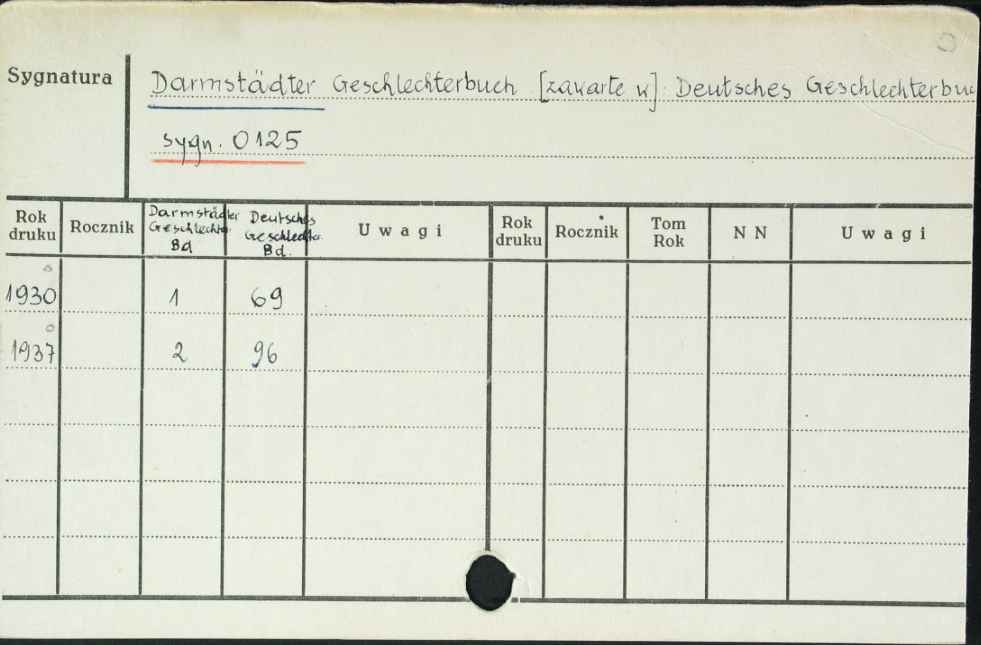 Sygnatura
Darmstädter Geschlechterbuch [zawarte w] Deutsches Geschlechterbuc
sygn. 0125
Rok druku
Rocznik
Darmstädter Geschlechter Bd
Deutsches Geschlechter Bd.
Uwagi
Rok druku
Rocznik
Tom Rok
NN
Uwagi
1930 1 69
1937 2 96